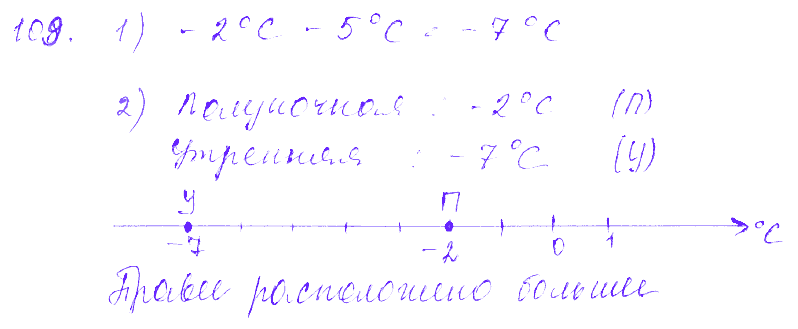 109. 1) -2°C - 5°C = -7°C
2) Полуночная : -2°C (П)
Утренняя : -7°C (У)
У П
-7 -2 0 1 °C
Правее расположено большее